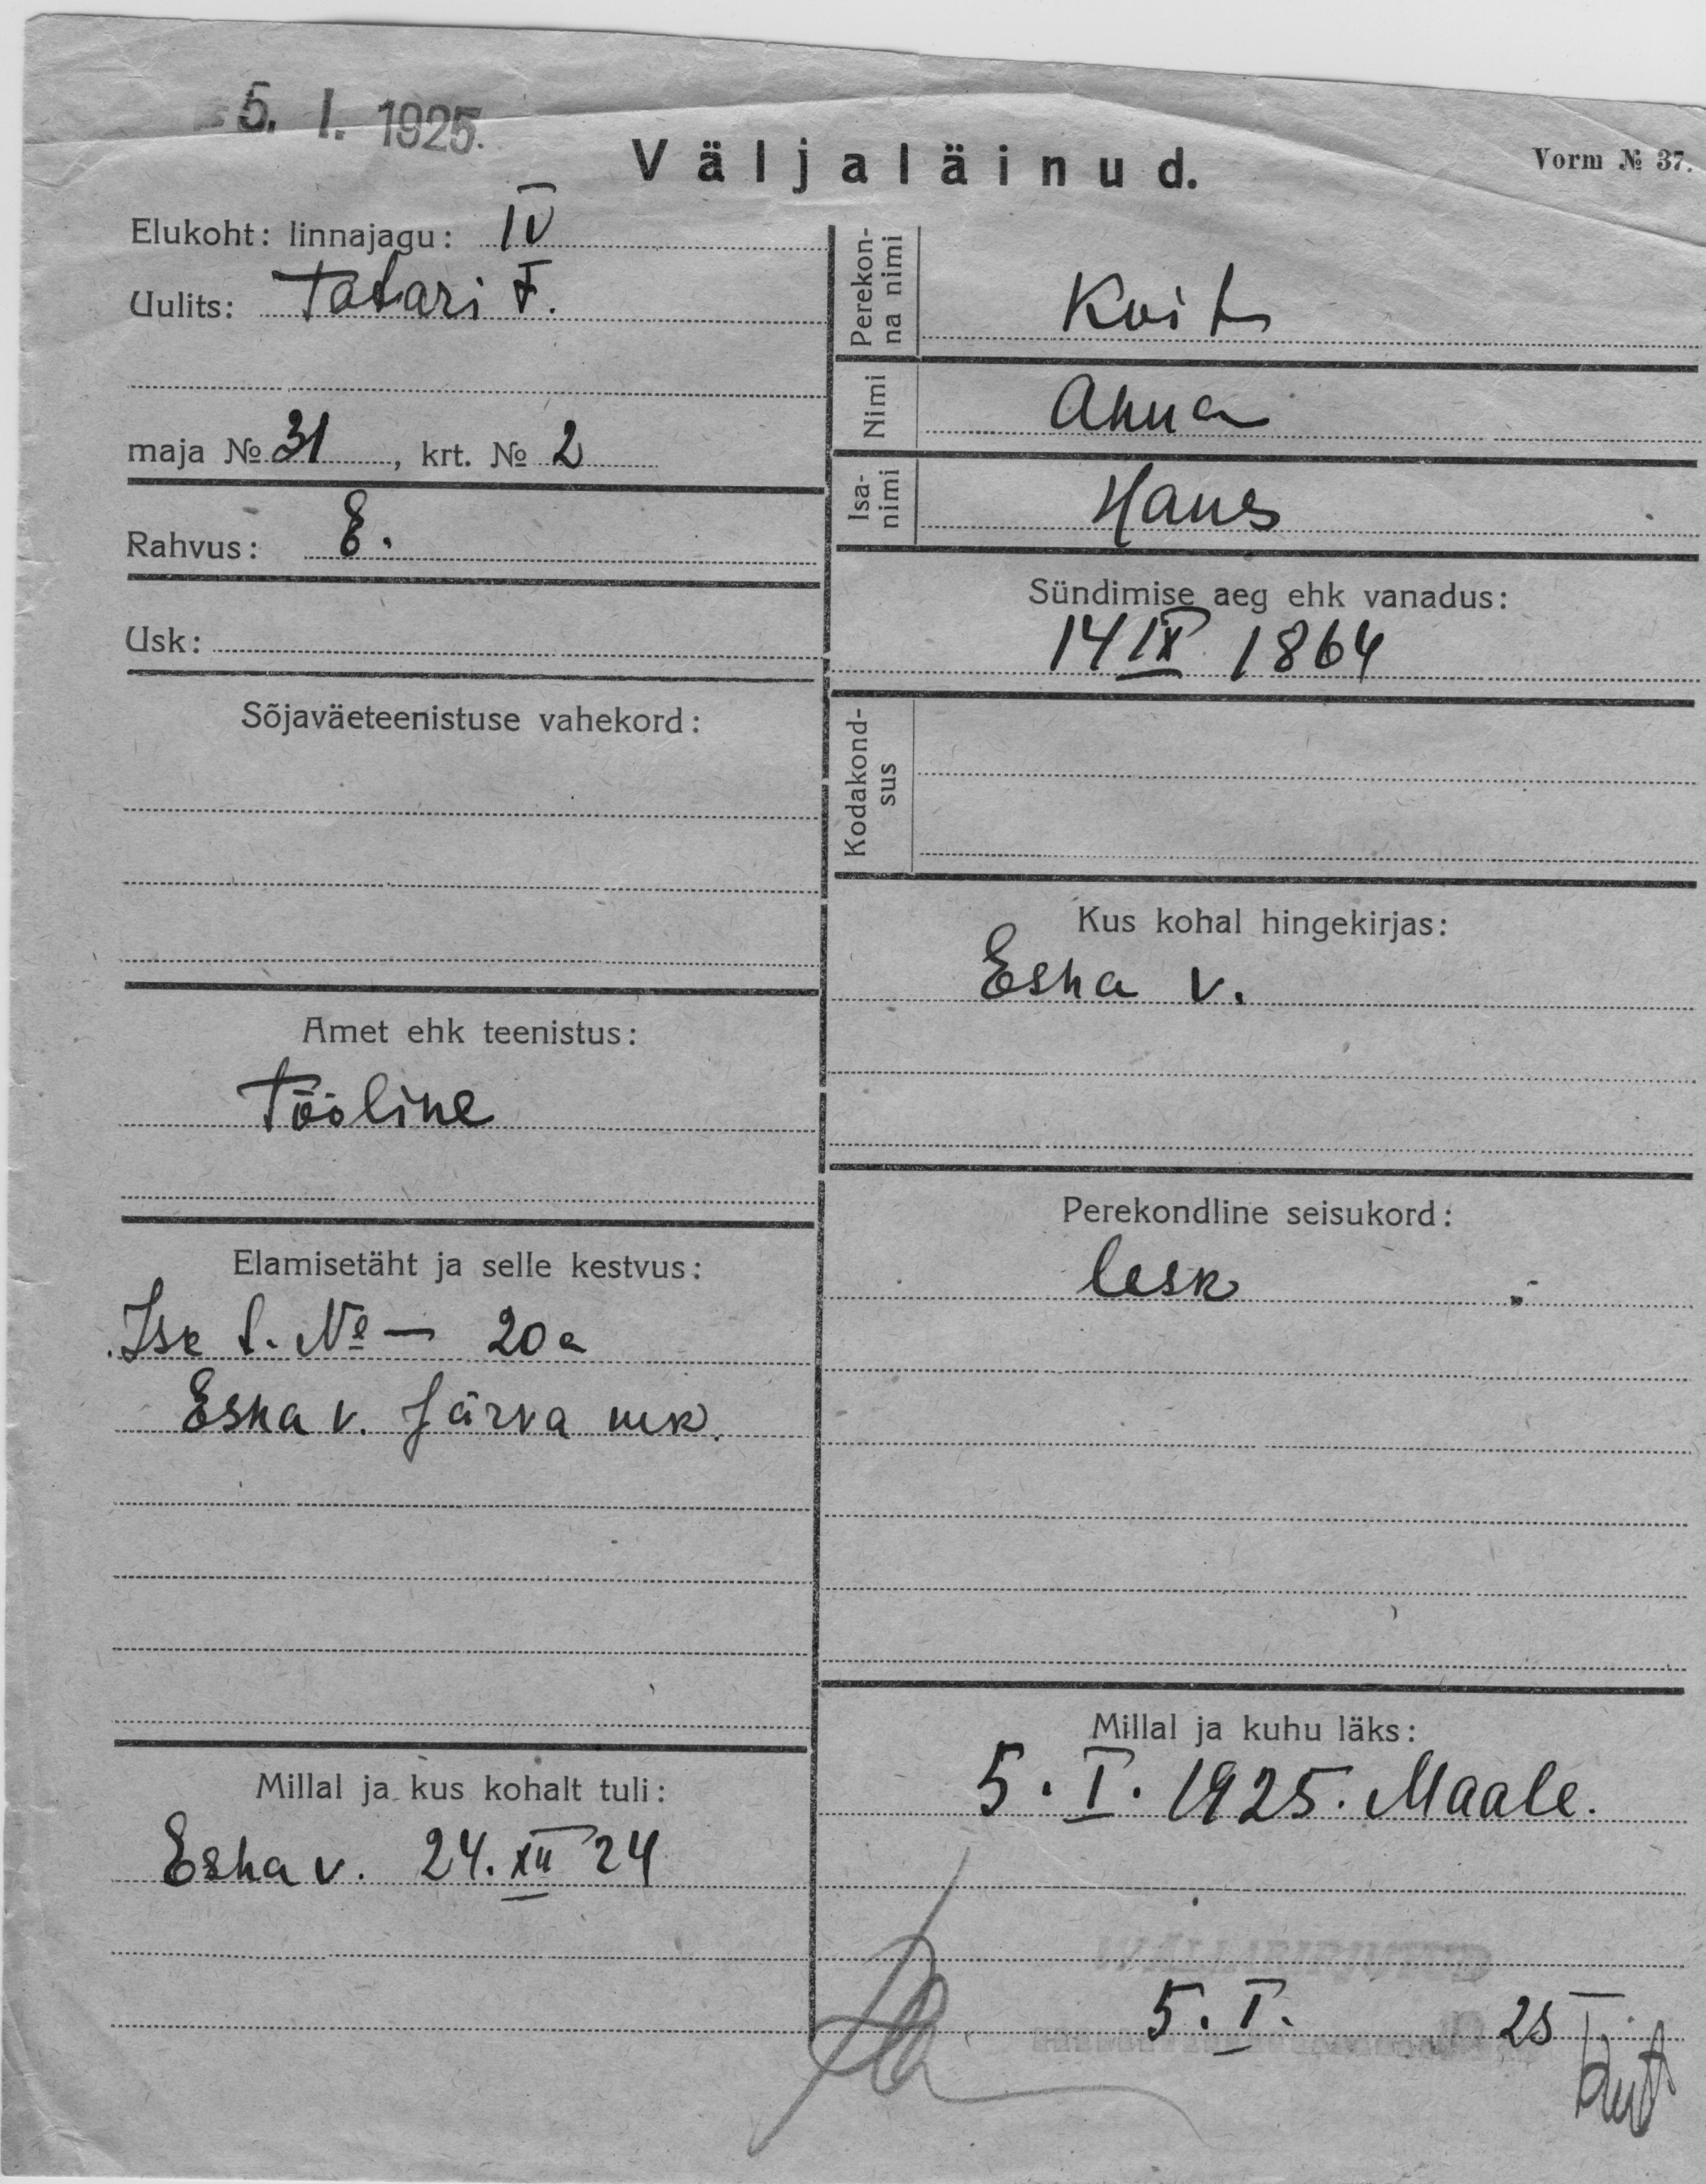 5. I. 1925.
Väljaläinud.
Vorm № 37.
Elukoht: linnajagu: IV
Uulits: Tatari T.
maja № 31, krt. № 2
Rahvus: E.
Usk:
Sõjaväeteenistuse vahekord:
Amet ehk teenistus:
Tööline
Elamisetäht ja selle kestvus:
Isk t. № — 20 a
Esna v. Järva mk.
Millal ja kus kohalt tuli:
Esna v. 24. XII 24
Perekon-
na nimi
Koit
Nimi
Anna
Isa-
nimi
Hans
Sündimise aeg ehk vanadus:
14 IX 1864
Kodakond-
sus
Kus kohal hingekirjas:
Esna v.
Perekondline seisukord:
lesk
Millal ja kuhu läks:
5. I. 1925. Maale.
5. I. 25